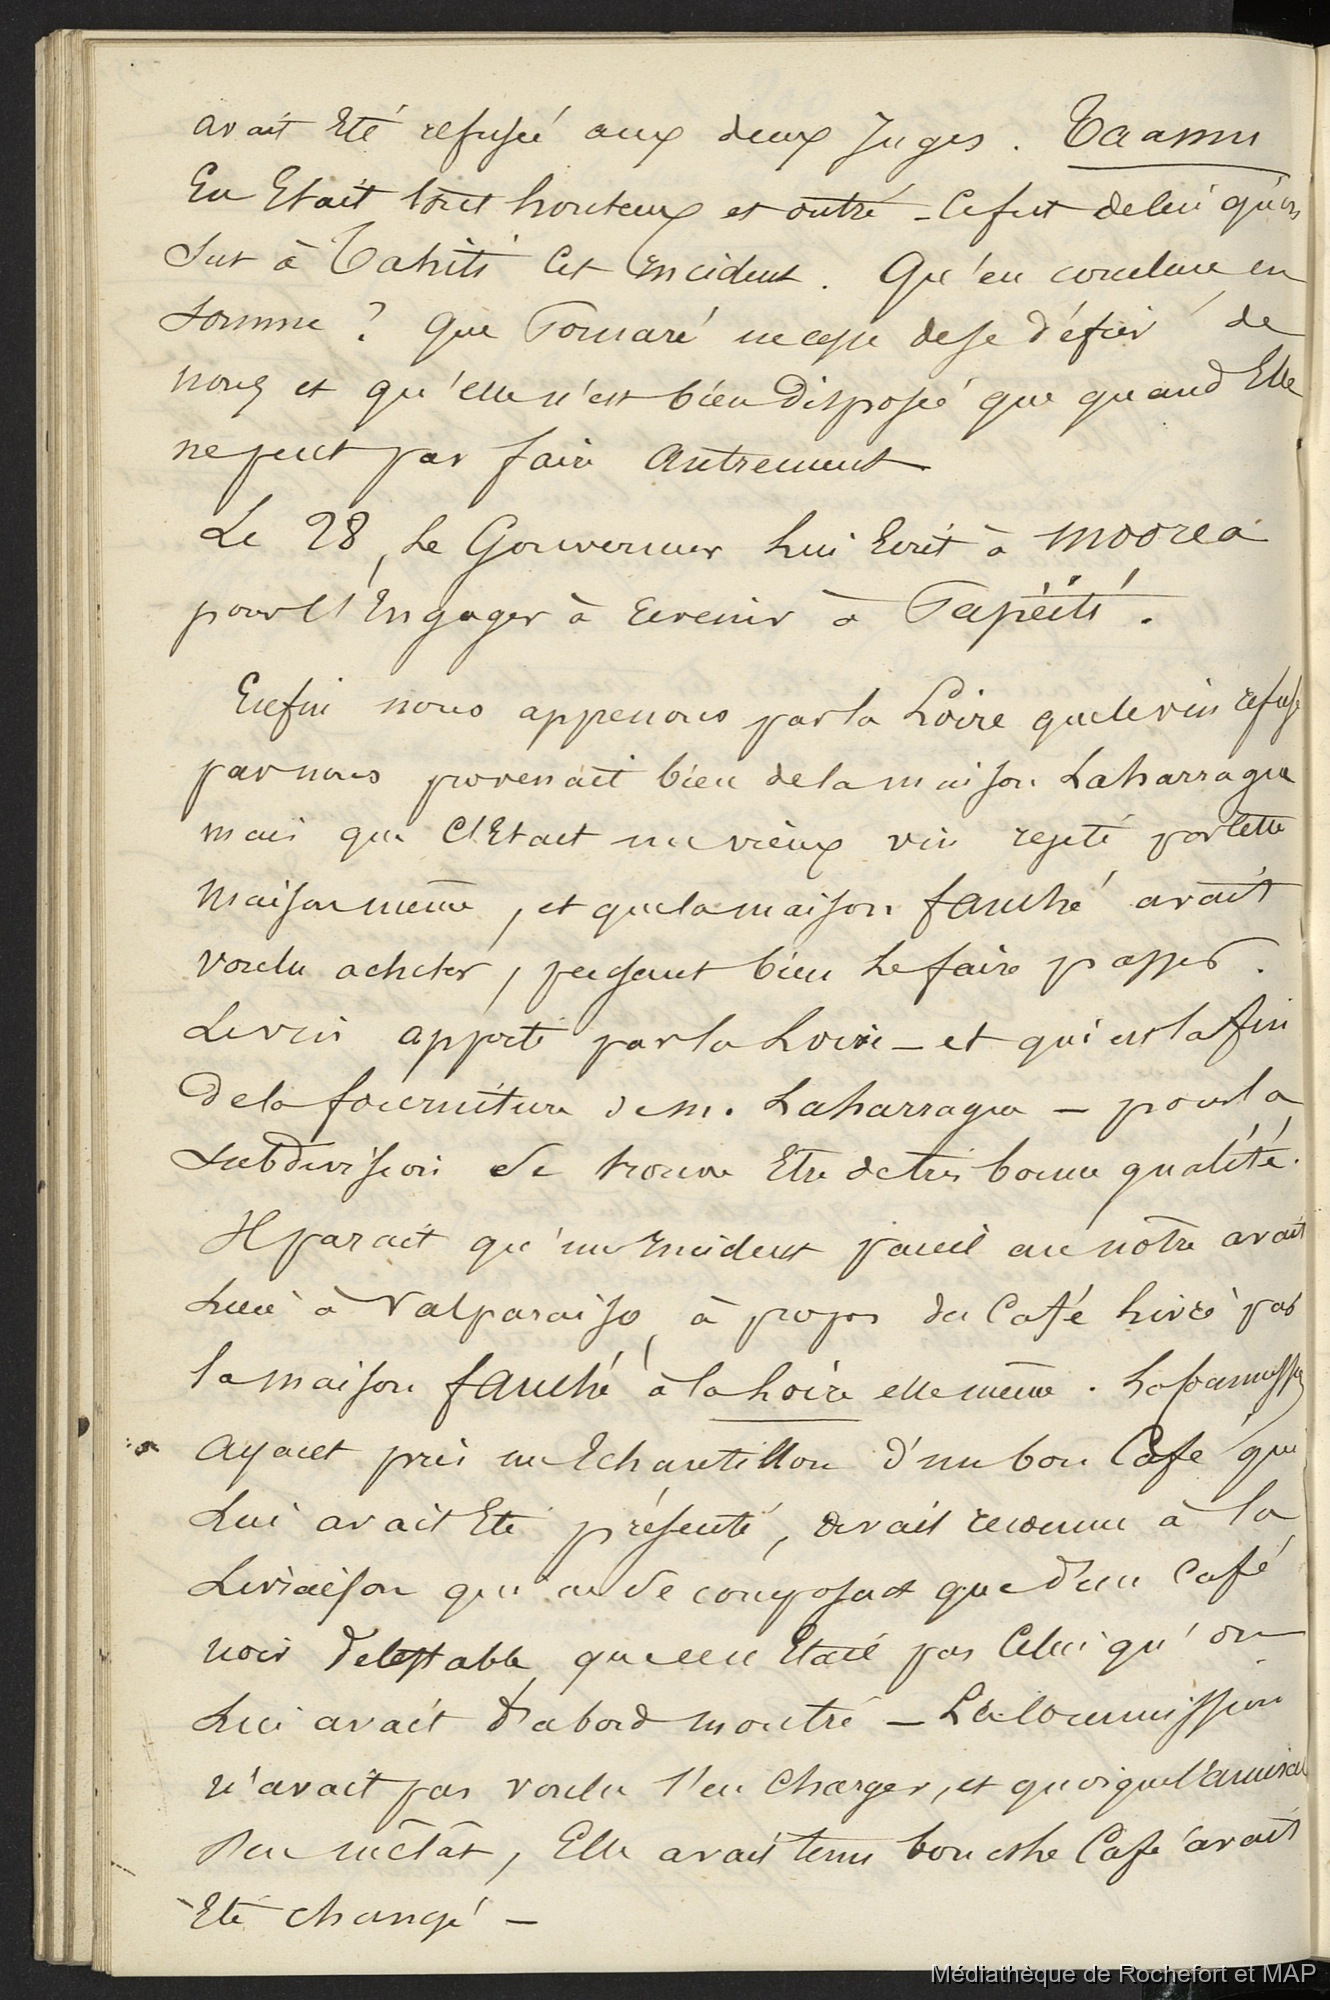 avait Eté refusée aux deux Juges. Taamu
En Etait tout honteux et outré - Ce fut de lui qu'on
Sut à Tahiti Cet Incident. Qu'en conclure en
Somme ? Que Pomaré ne cesse de se défier de
nous et qu'elle n'est bien Disposée que quand Elle
ne peut pas faire Autrement
Le 28, Le Gouverneur Lui Ecrit à Moorea
pour l'Engager à revenir à Papéïti.
Enfin nous apprenons par la Loire que le vin refusé
par nous provenait bien de la maison Laharrague
mais que C'Etait un vieux vin rejeté par Cette
Maison même, et que la maison fauché avait
voulu acheter, pensant bien Le faire passer.
Le vin apporté par la Loire - et qui est la fin
De la fourniture de M. Laharrague - pour la
Subdivision Se trouve Etre de très bonne qualité.
Il parait qu'un Incident pareil au nôtre avait
Lieu à Valparaiso, à propos du Café Livré par
la maison fauché à la Loire elle même. La Commission
Ayant pris un Echantillon d'un bon Café qui
Lui avait Eté présenté, avait reconnu à la
Livraison qu'on Se composait que d'un Café
noir Detestable que n'en Etait pas Celui qu'on
Lui avait D'abord montré - La Commission
n'avait pas voulu s'en Charger, et quoique l'amiral
S'en mêlât, Elle avait tenu bon et le Café avait
Eté changé -
Médiathèque de Rochefort et MAP